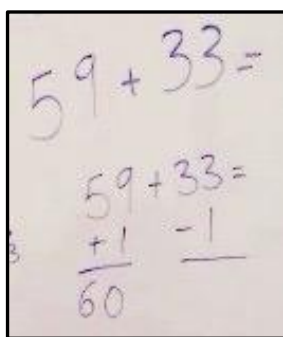 59 + 33 =
59 + 33 =
+1 -1
3
60